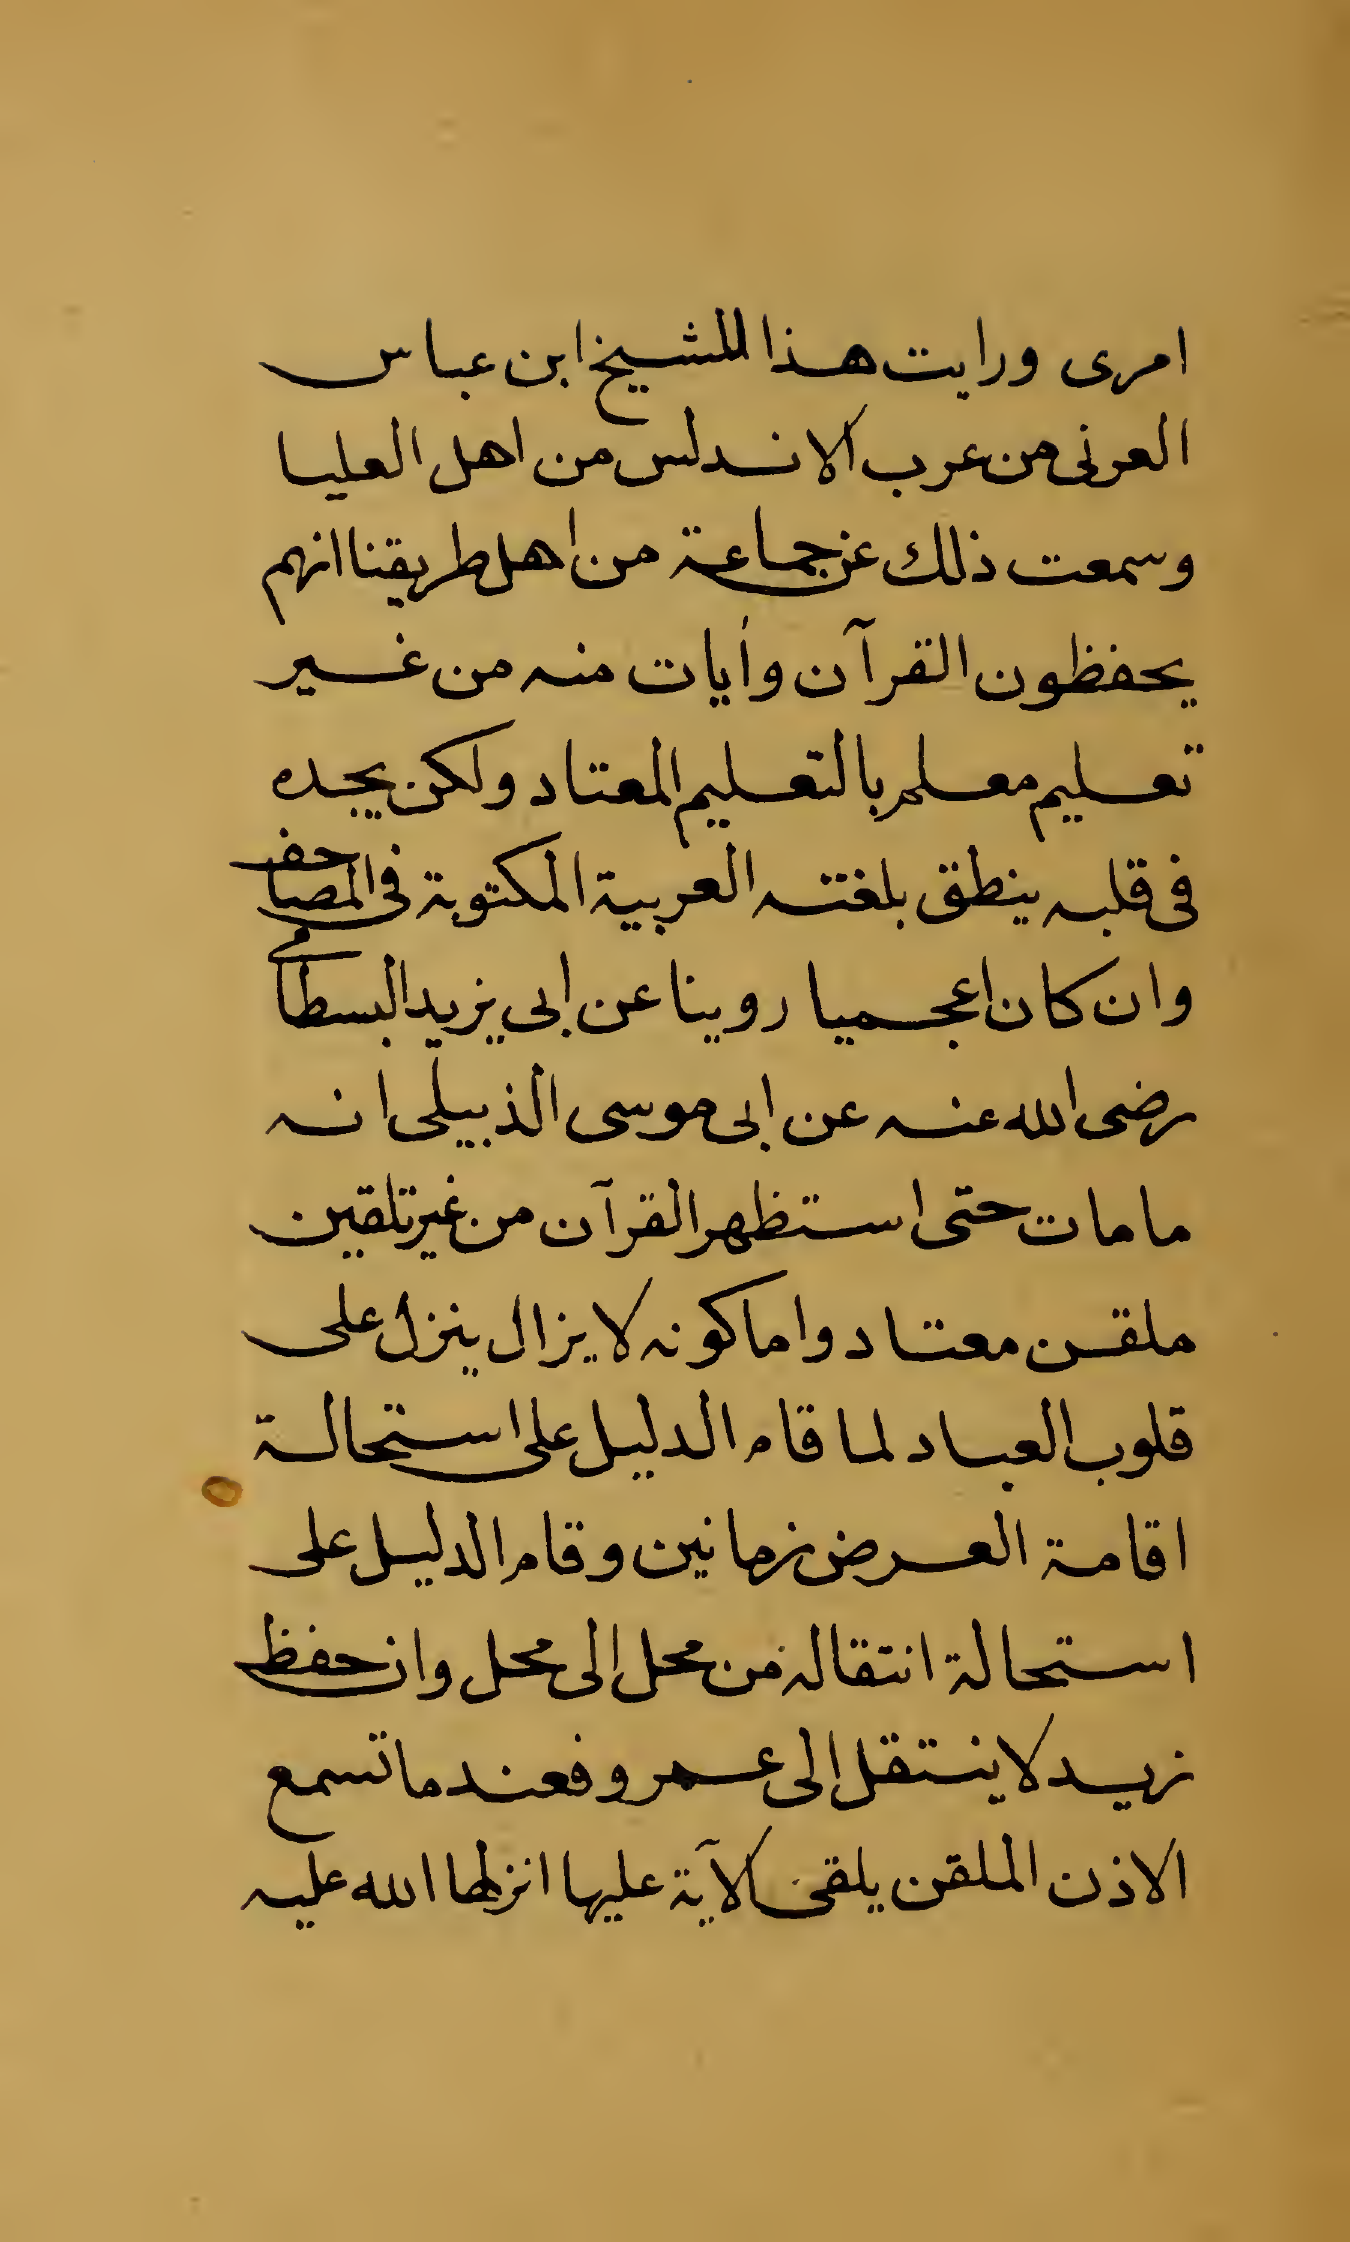 امرى ورايت هذا للشيخ ابن عباس
العرنى من عرب الاندلس من اهل العليا
وسمعت ذلك عن جماعة من اهل طريقنا انهم
يحفظون القرآن وأيات منه من غير
تعليم معلم بالتعليم المعتاد ولكن يجده
فى قلبه ينطق بلغته العربية المكتوبة فى المصاحف
وان كان اعجميا روينا عن ابى يزيد البسطامى
رضى الله عنه عن ابى موسى الذبيلى انه
ما مات حتى استظهر القرآن من غير تلقين
ملقن معتاد واما كونه لا يزال ينزل على
قلوب العباد لما قام الدليل على استحالة
اقامة العرض زمانين وقام الدليل على
استحالة انتقاله من محل الى محل وان حفظ
زيد لا ينتقل الى عمرو فعندما تسمع
الاذن الملقن يلقى الآية عليها انزلها الله عليه